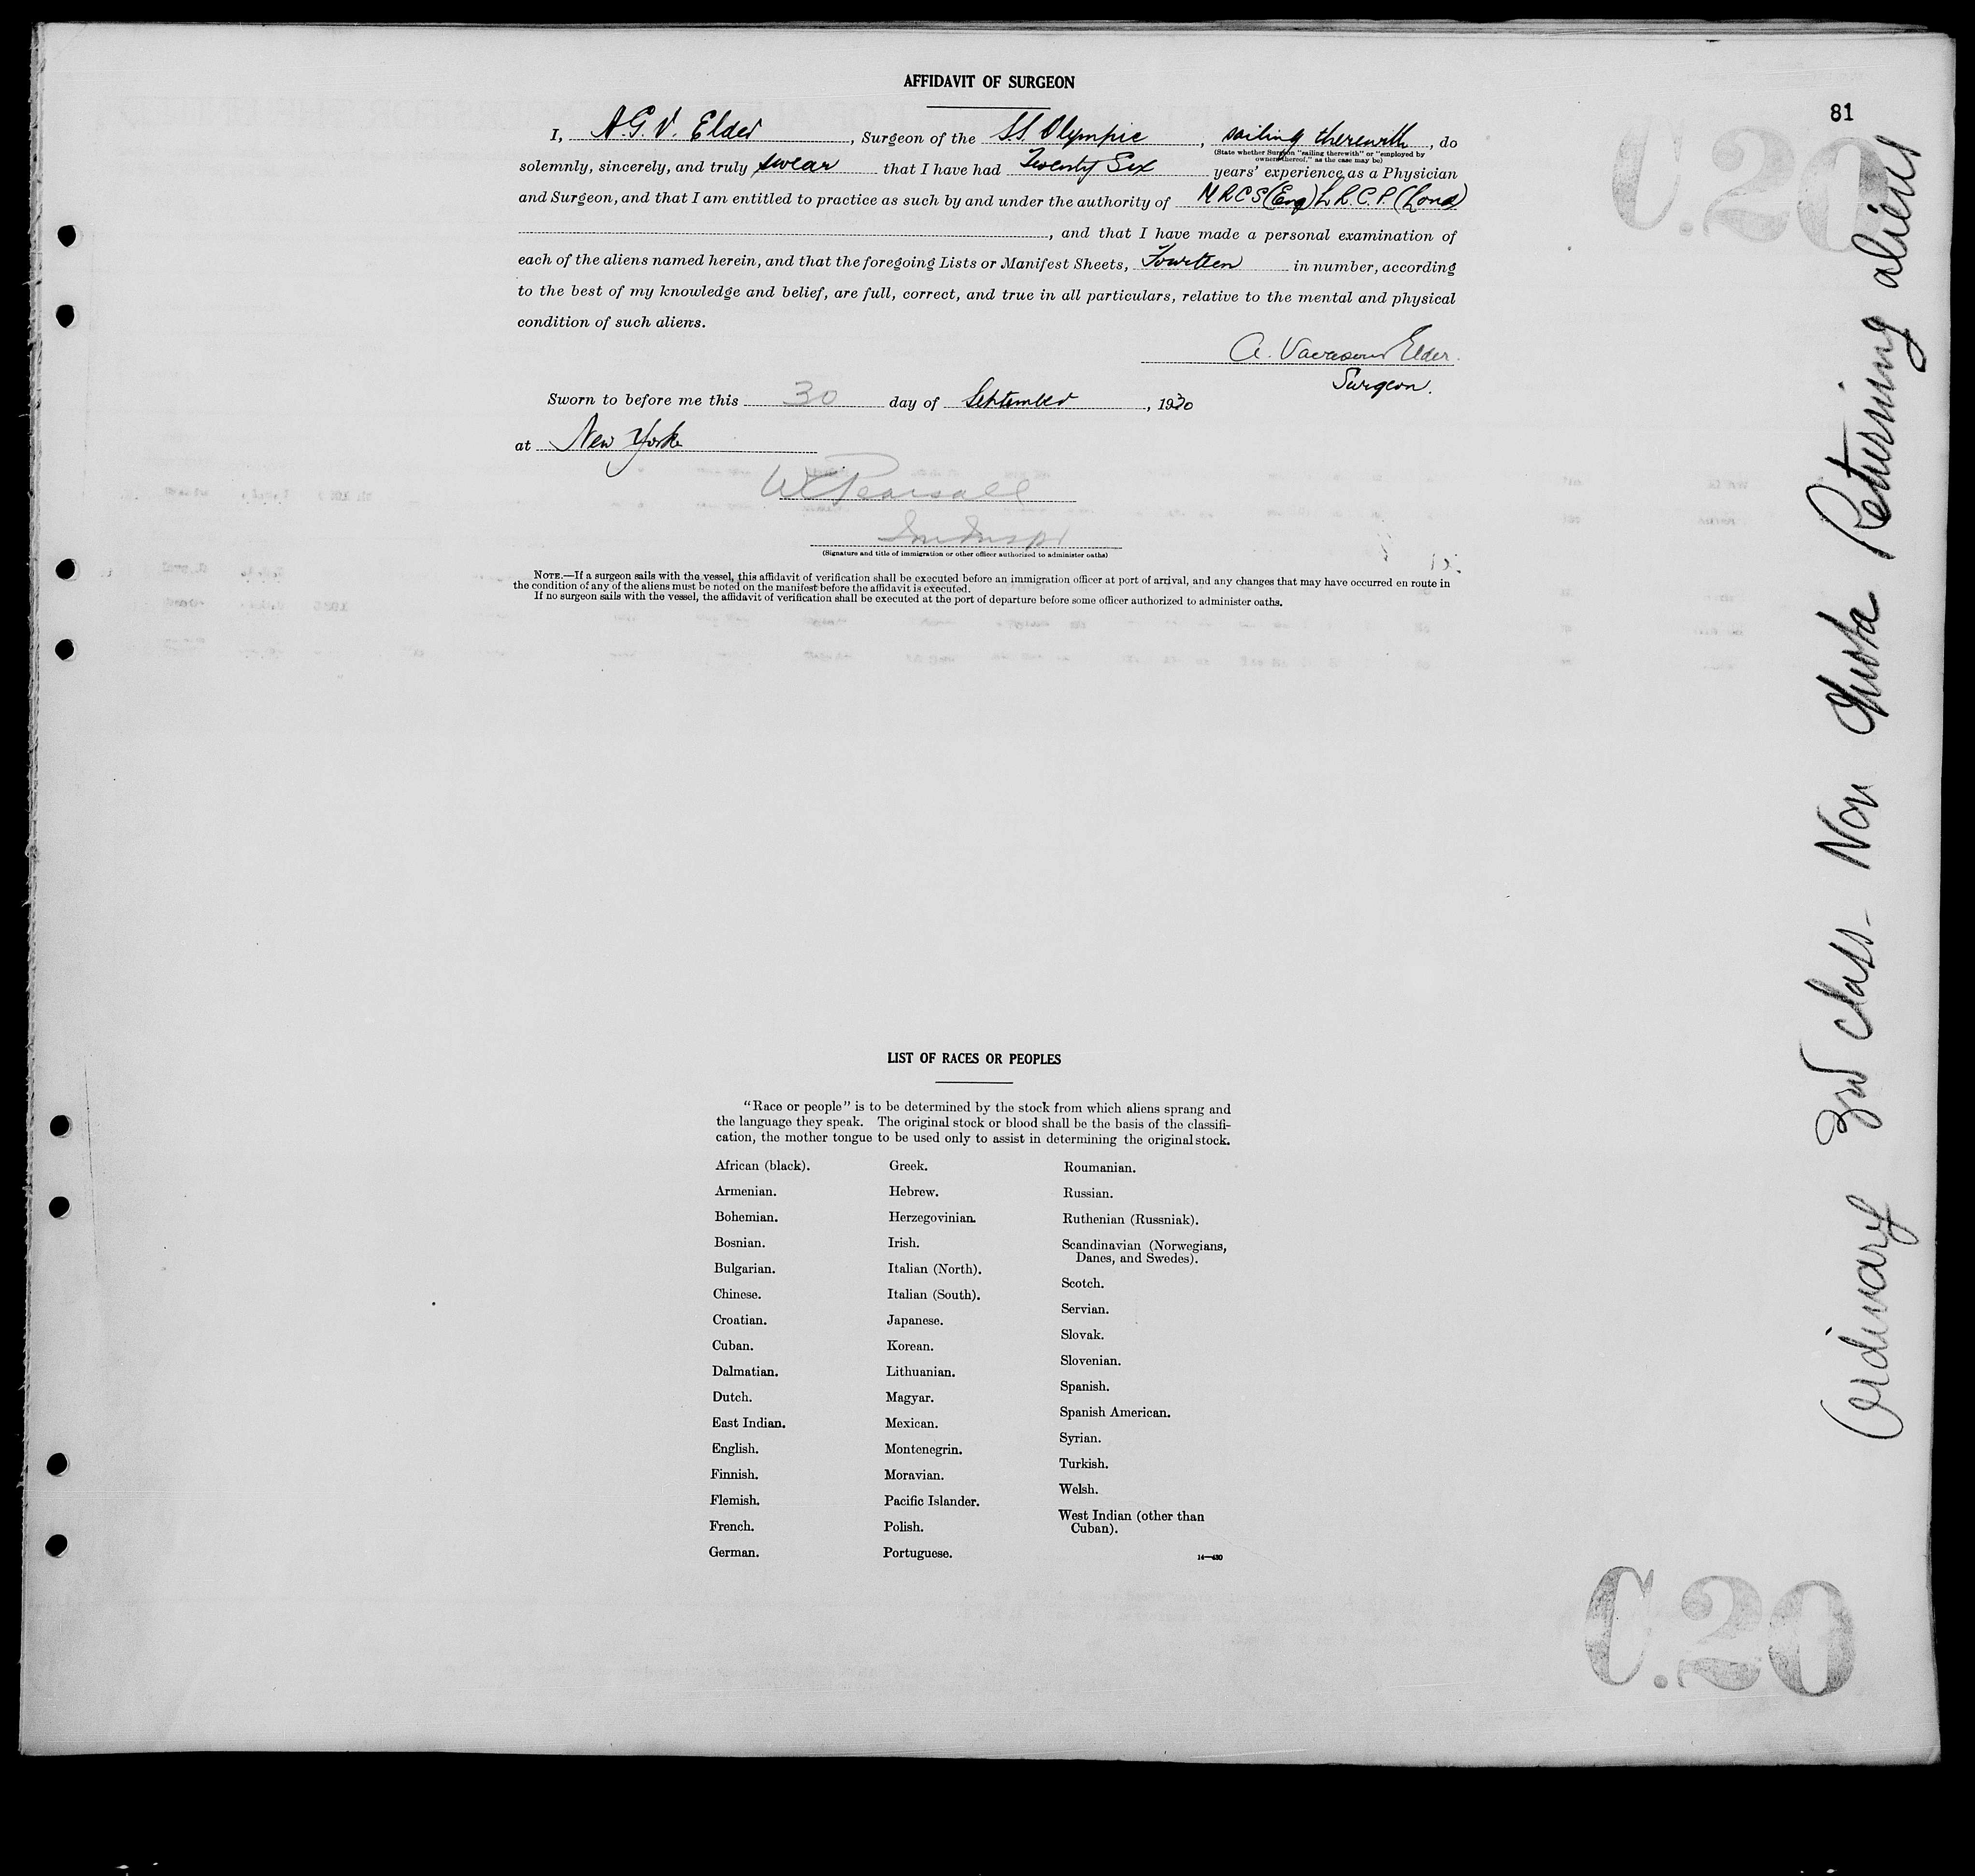 AFFIDAVIT OF SURGEON
81
I, A.G.V. Elder, Surgeon of the SS Olympic, sailing therewith, do
(State whether Surgeon "sailing therewith" or "employed by
owners thereof," as the case may be)
solemnly, sincerely, and truly swear that I have had Twenty Six years' experience as a Physician
and Surgeon, and that I am entitled to practice as such by and under the authority of MRCS(Eng) L.R.C.P.(Lond)
, and that I have made a personal examination of
each of the aliens named herein, and that the foregoing Lists or Manifest Sheets, Fourteen in number, according
to the best of my knowledge and belief, are full, correct, and true in all particulars, relative to the mental and physical
condition of such aliens.
A. Elder.
Surgeon.
Sworn to before me this 30 day of September, 1930
at New York
W Pearsall
(Signature and title of immigration or other officer authorized to administer oaths)
NOTE.—If a surgeon sails with the vessel, this affidavit of verification shall be executed before an immigration officer at port of arrival, and any changes that may have occurred en route in
the condition of any of the aliens must be noted on the manifest before the affidavit is executed.
If no surgeon sails with the vessel, the affidavit of verification shall be executed at the port of departure before some officer authorized to administer oaths.
LIST OF RACES OR PEOPLES
"Race or people" is to be determined by the stock from which aliens sprang and
the language they speak. The original stock or blood shall be the basis of the classifi-
cation, the mother tongue to be used only to assist in determining the original stock.
African (black).
Armenian.
Bohemian.
Bosnian.
Bulgarian.
Chinese.
Croatian.
Cuban.
Dalmatian.
Dutch.
East Indian.
English.
Finnish.
Flemish.
French.
German.
Greek.
Hebrew.
Herzegovinian.
Irish.
Italian (North).
Italian (South).
Japanese.
Korean.
Lithuanian.
Magyar.
Mexican.
Montenegrin.
Moravian.
Pacific Islander.
Polish.
Portuguese.
Roumanian.
Russian.
Ruthenian (Russniak).
Scandinavian (Norwegians,
Danes, and Swedes).
Scotch.
Servian.
Slovak.
Slovenian.
Spanish.
Spanish American.
Syrian.
Turkish.
Welsh.
West Indian (other than
Cuban).
14—430
Ordinary 3rd class - Non Quota Returning aliens
C.20
C.20